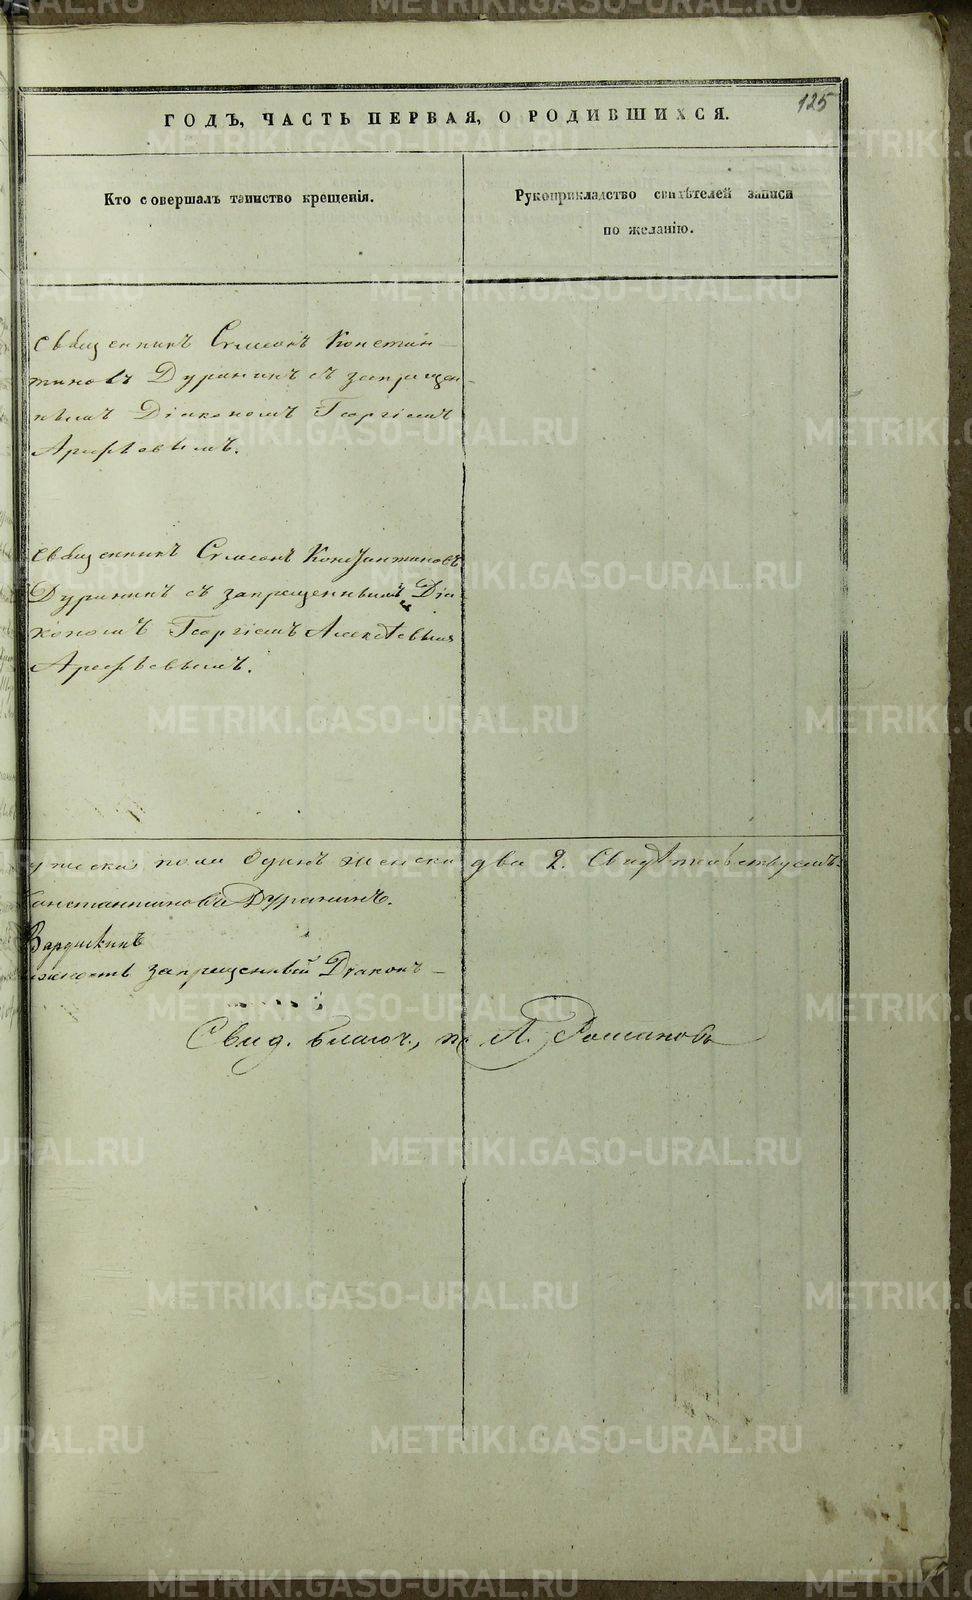 125
ГОДЪ, ЧАСТЬ ПЕРВАЯ, О РОДИВШИХСЯ.
Кто совершалъ таинство крещенія.
Рукоприкладство свидѣтелей записи
по желанію.
Священникъ Симеонъ Констан-
тиновъ Дуранинъ съ запрещен-
нымъ Діакономъ Георгіемъ
Арефьевымъ.
Священникъ Симеонъ Константиновъ
Дуранинъ съ запрещеннымъ Діа-
кономъ Георгіемъ Алексѣевымъ
Арефьевымъ.
ужеска пола одинъ женска два 2. Свидѣтельствуемъ:
Константиновъ Дуранинъ.
запрещенный Діаконъ
Свид. благоч., А. Романовъ
METRIKI.GASO-URAL.RU